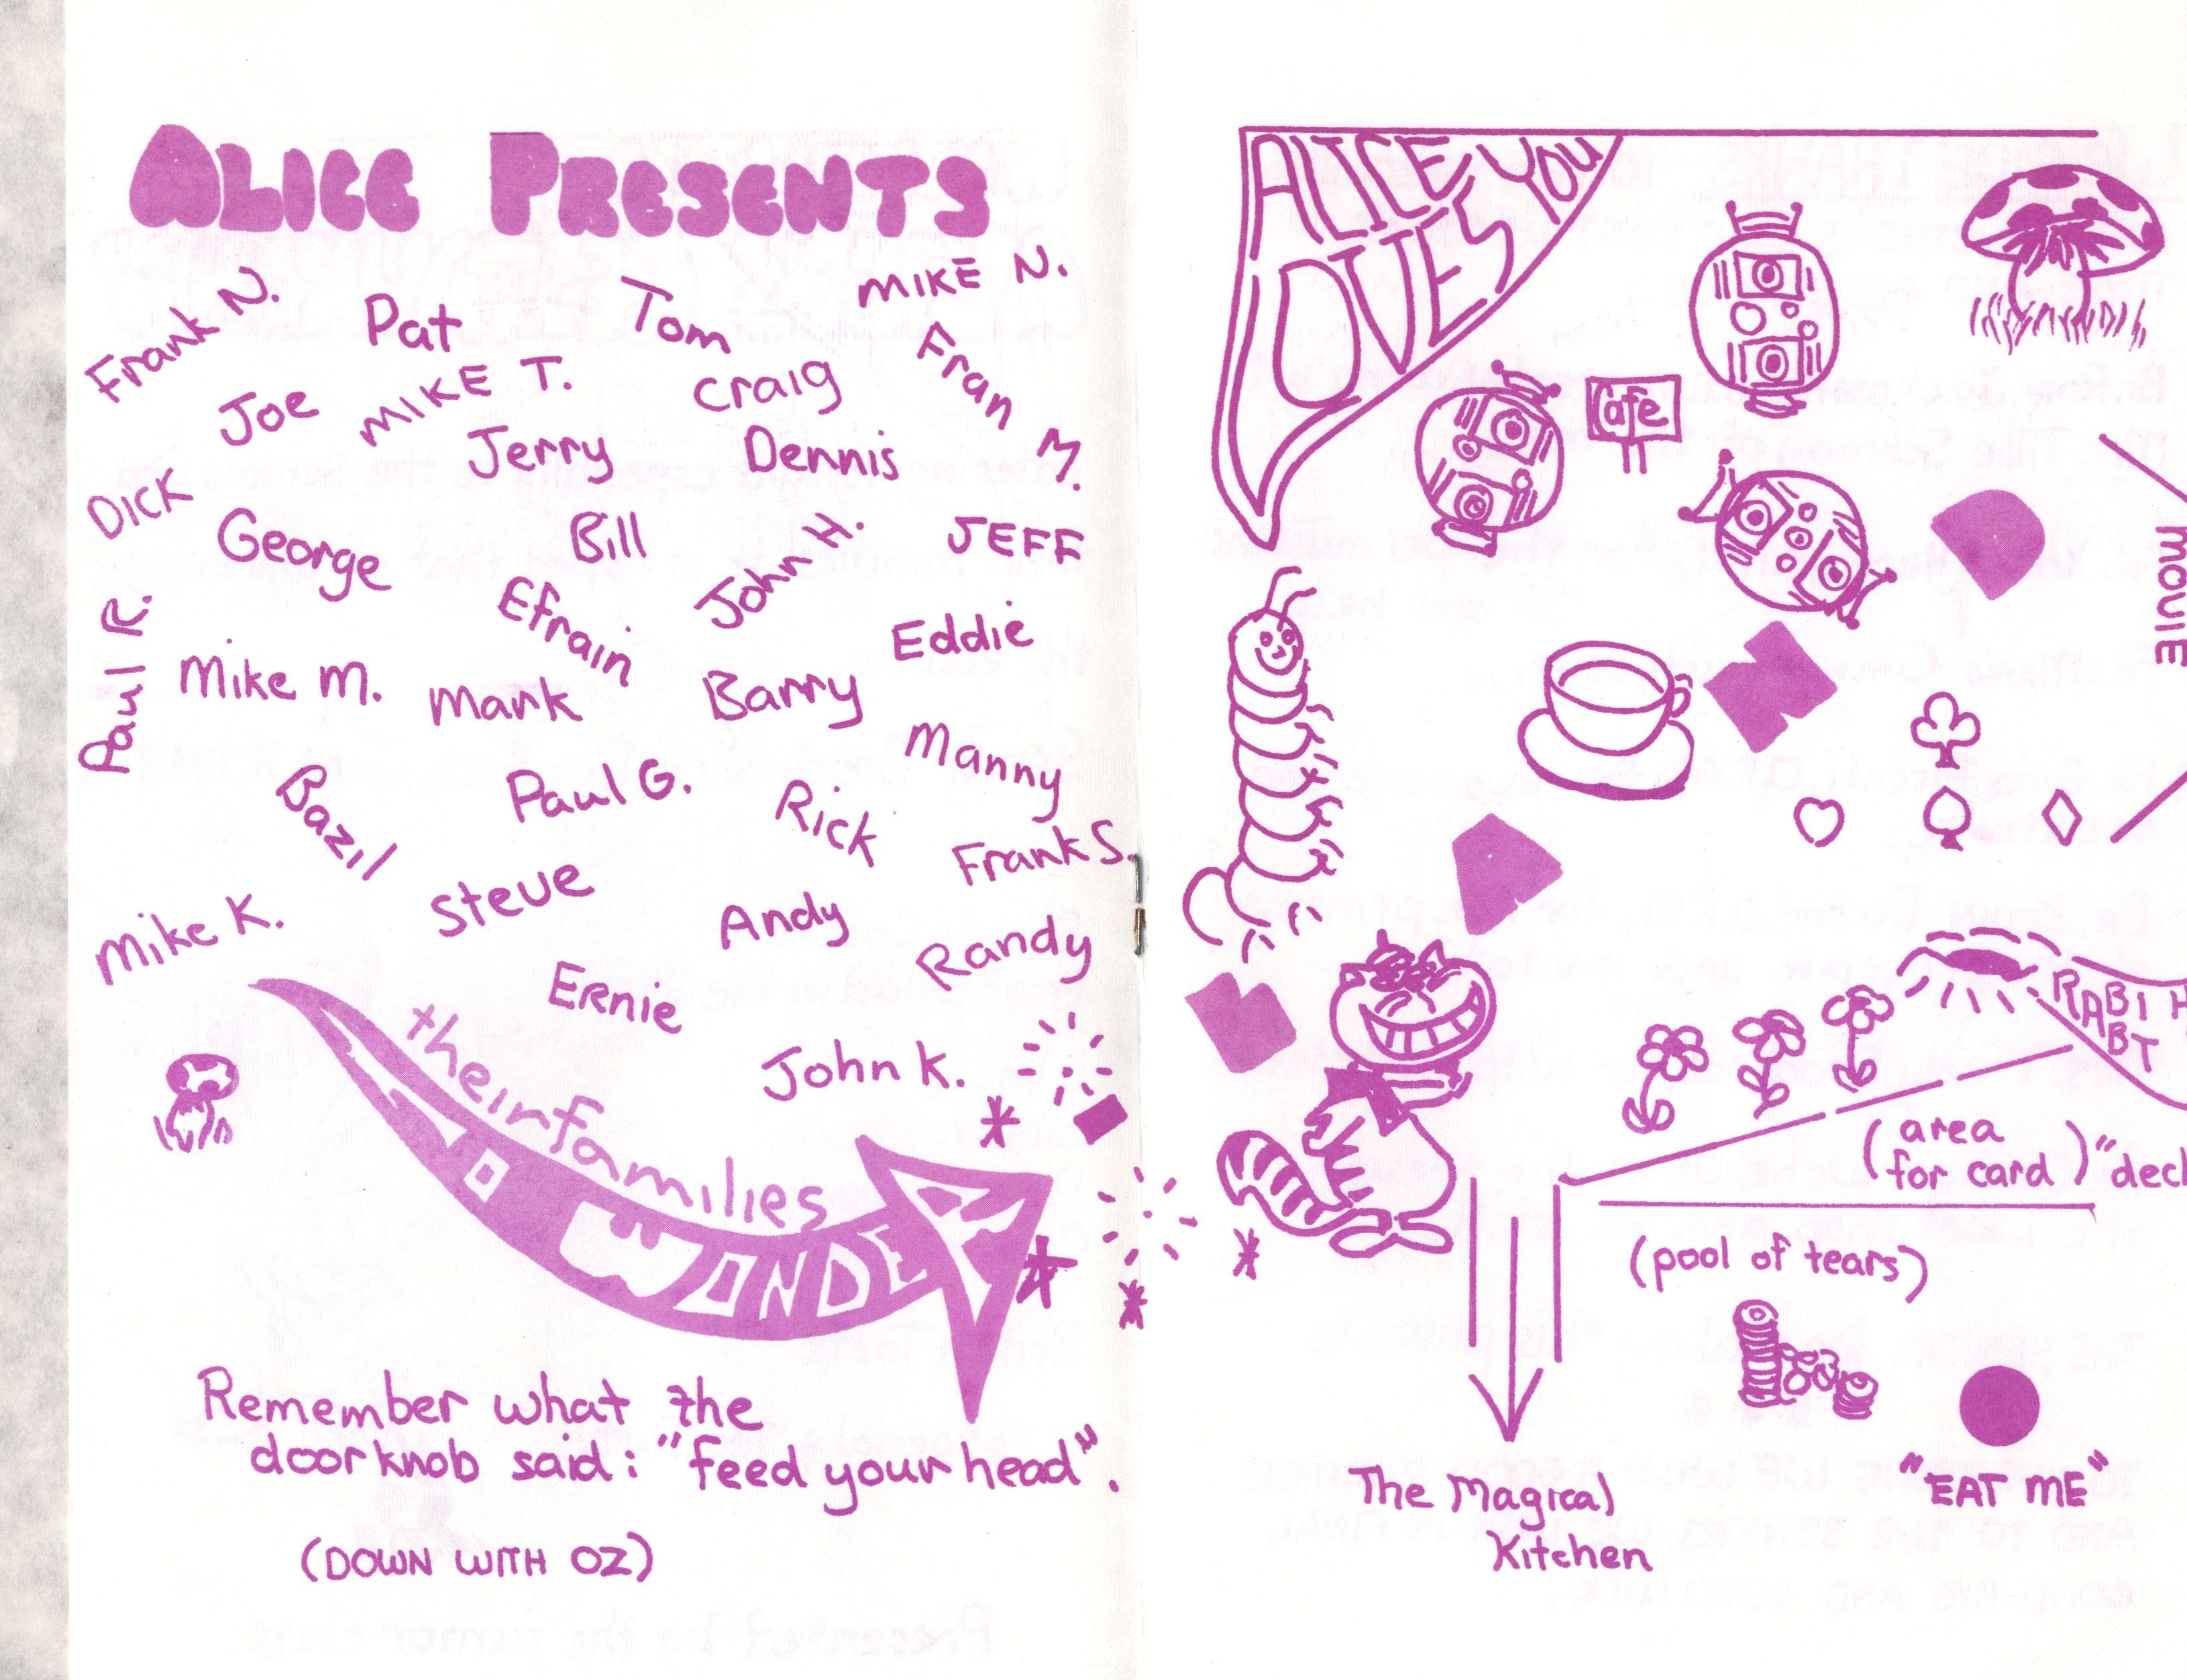 ALICE PRESENTS
Frank N.
Pat
Tom
MIKE N.
Joe
MIKE T.
Craig
Fran M.
Jerry
Dennis
DICK
George
Bill
John H.
JEFF
Paul R.
Efrain
Eddie
Mike M.
Mark
Barry
Manny
Bazil
Paul G.
Rick
Frank S.
Mike K.
Steve
Andy
Randy
Ernie
John K.
their families
Remember what the
doorknob said: "feed your head".
(DOWN WITH OZ)
ALICE
LOVES YOU
Cafe
MOVIE
RABBIT H
(area
for card) "deck
(pool of tears)
"EAT ME"
The Magical
Kitchen